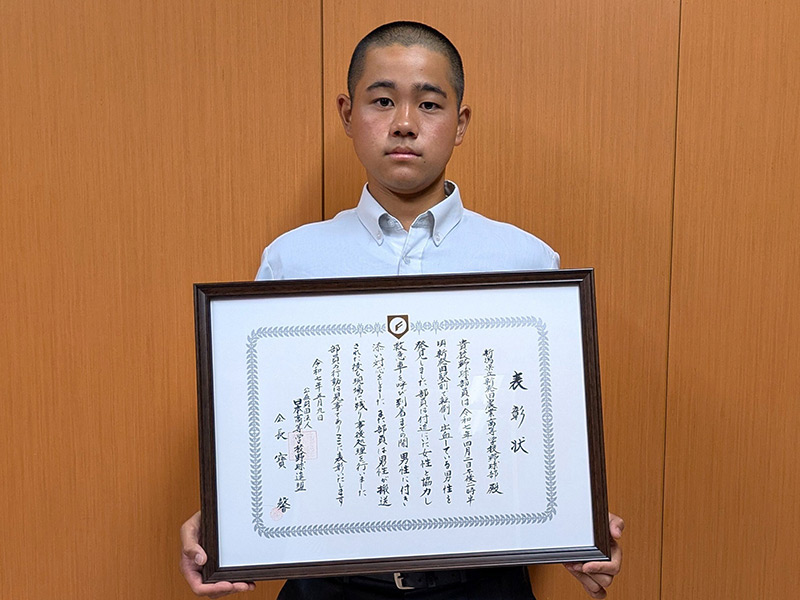 表彰状
新潟県立新発田農業高等学校野球部 殿
貴校野球部員は令和七年四月二日午後二時半
頃新発田駅前で転倒し出血している男性を
発見しました 部員は付近にいた女性と協力し
救急車を呼び到着までの間 男性に付き
添い対応をしました また部員は男性が搬送
された後も現場に残り事後処理を行いました
部員の行動は見事でありここに表彰いたします
令和七年五月九日
公益財団法人
日本高等学校野球連盟
会長 寶 馨
F